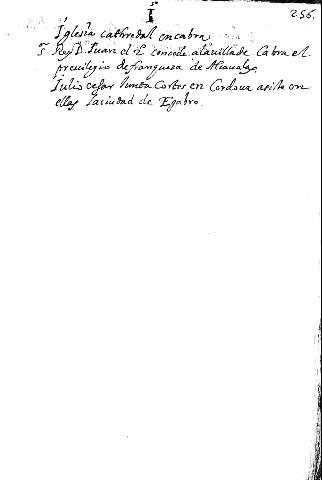 I
256.
Iglesia cathredal en cabra
Rey D. Juan el 2 concede a la villa de Cabra el
previlegio de franqueza de Alcavalas
Julio cesar junta Cortes en Cordova asiste en
ellas la ciudad de Egabro.